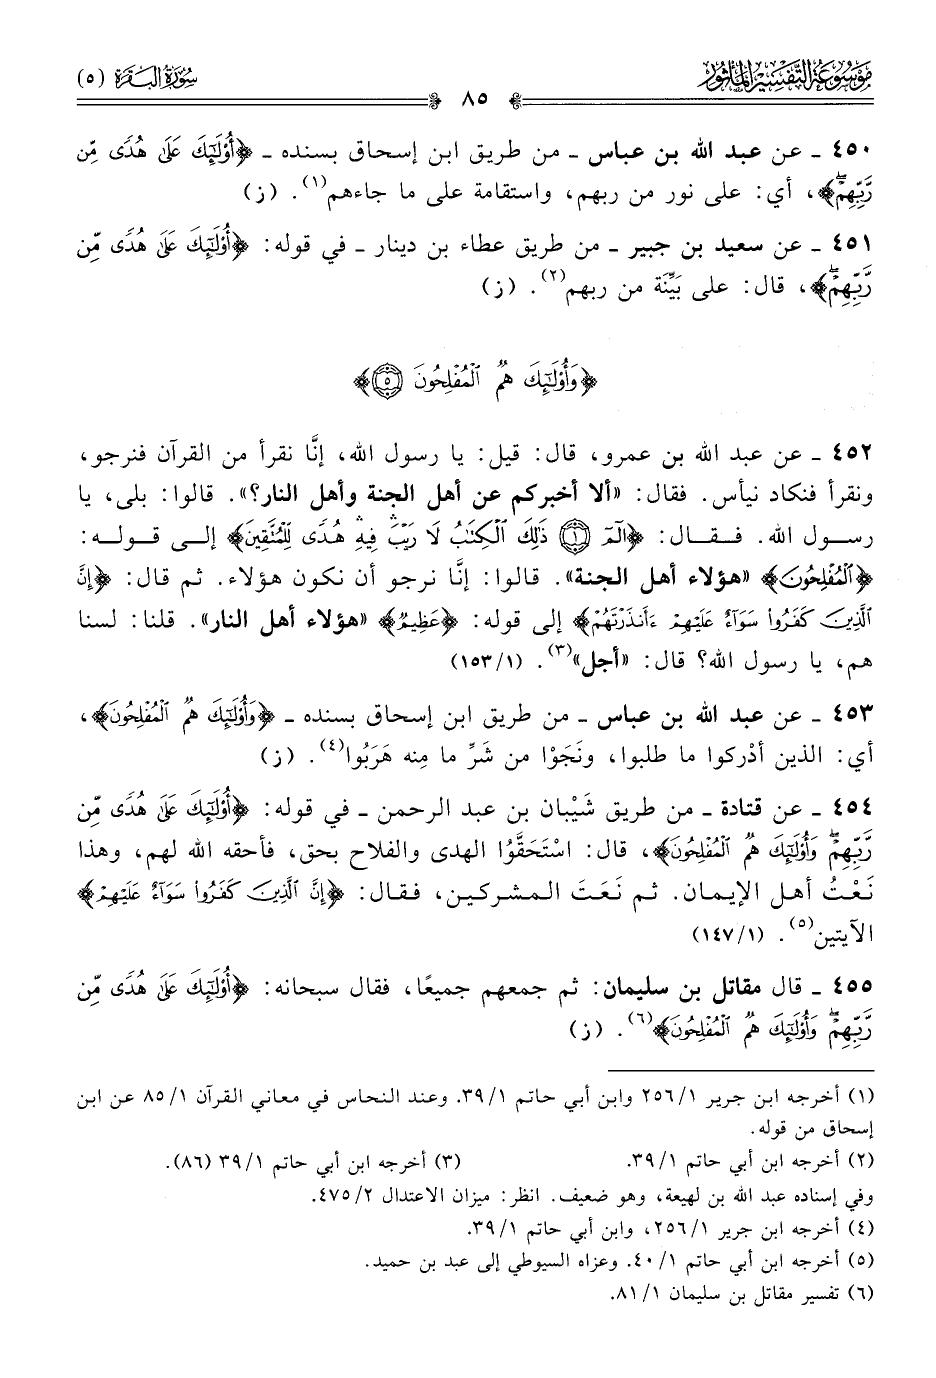 موسوعة التفسير المأثور
سورة البقرة (٥)
٨٥
٤٥٠ ـ عن عبد الله بن عباس ـ من طريق ابن إسحاق بسنده ـ ﴿أُوْلَٰٓئِكَ عَلَىٰ هُدًى مِّن
رَّبِّهِمْۖ﴾، أي: على نور من ربهم، واستقامة على ما جاءهم(١). (ز)
٤٥١ ـ عن سعيد بن جبير ـ من طريق عطاء بن دينار ـ في قوله: ﴿أُوْلَٰٓئِكَ عَلَىٰ هُدًى مِّن
رَّبِّهِمْۖ﴾، قال: على بَيِّنَة من ربهم(٢). (ز)
﴿وَأُوْلَٰٓئِكَ هُمُ ٱلْمُفْلِحُونَ ٥﴾
٤٥٢ ـ عن عبد الله بن عمرو، قال: قيل: يا رسول الله، إنَّا نقرأ من القرآن فنرجو،
ونقرأ فنكاد نيأس. فقال: «ألا أخبركم عن أهل الجنة وأهل النار؟». قالوا: بلى، يا
رسول الله. فقال: ﴿الٓمٓ ١ ذَٰلِكَ ٱلْكِتَٰبُ لَا رَيْبَۛ فِيهِۛ هُدًى لِّلْمُتَّقِينَ﴾ إلى قوله:
﴿ٱلْمُفْلِحُونَ﴾ «هؤلاء أهل الجنة». قالوا: إنَّا نرجو أن نكون هؤلاء. ثم قال: ﴿إِنَّ
ٱلَّذِينَ كَفَرُواْ سَوَآءٌ عَلَيْهِمْ ءَأَنذَرْتَهُمْ﴾ إلى قوله: ﴿عَظِيمٌ﴾ «هؤلاء أهل النار». قلنا: لسنا
هم، يا رسول الله؟ قال: «أجل»(٣). (١/١٥٣)
٤٥٣ ـ عن عبد الله بن عباس ـ من طريق ابن إسحاق بسنده ـ ﴿وَأُوْلَٰٓئِكَ هُمُ ٱلْمُفْلِحُونَ﴾،
أي: الذين أدْركوا ما طلبوا، ونَجَوْا من شَرِّ ما مِنه هَرَبُوا(٤). (ز)
٤٥٤ ـ عن قتادة ـ من طريق شَيْبان بن عبد الرحمن ـ في قوله: ﴿أُوْلَٰٓئِكَ عَلَىٰ هُدًى مِّن
رَّبِّهِمْۖ وَأُوْلَٰٓئِكَ هُمُ ٱلْمُفْلِحُونَ﴾، قال: اسْتَحَقُّوا الهدى والفلاح بحق، فأحقه الله لهم، وهذا
نَعْتُ أهل الإيمان. ثم نَعَتَ المشركين، فقال: ﴿إِنَّ ٱلَّذِينَ كَفَرُواْ سَوَآءٌ عَلَيْهِمْ﴾
الآيتين(٥). (١/١٤٧)
٤٥٥ ـ قال مقاتل بن سليمان: ثم جمعهم جميعًا، فقال سبحانه: ﴿أُوْلَٰٓئِكَ عَلَىٰ هُدًى مِّن
رَّبِّهِمْۖ وَأُوْلَٰٓئِكَ هُمُ ٱلْمُفْلِحُونَ﴾(٦). (ز)
(١) أخرجه ابن جرير ١/٢٥٦ وابن أبي حاتم ١/٣٩. وعند النحاس في معاني القرآن ١/٨٥ عن ابن
إسحاق من قوله.
(٢) أخرجه ابن أبي حاتم ١/٣٩. (٣) أخرجه ابن أبي حاتم ١/٣٩ (٨٦).
وفي إسناده عبد الله بن لهيعة، وهو ضعيف. انظر: ميزان الاعتدال ٢/٤٧٥.
(٤) أخرجه ابن جرير ١/٢٥٦، وابن أبي حاتم ١/٣٩.
(٥) أخرجه ابن أبي حاتم ١/٤٠. وعزاه السيوطي إلى عبد بن حميد.
(٦) تفسير مقاتل بن سليمان ١/٨١.